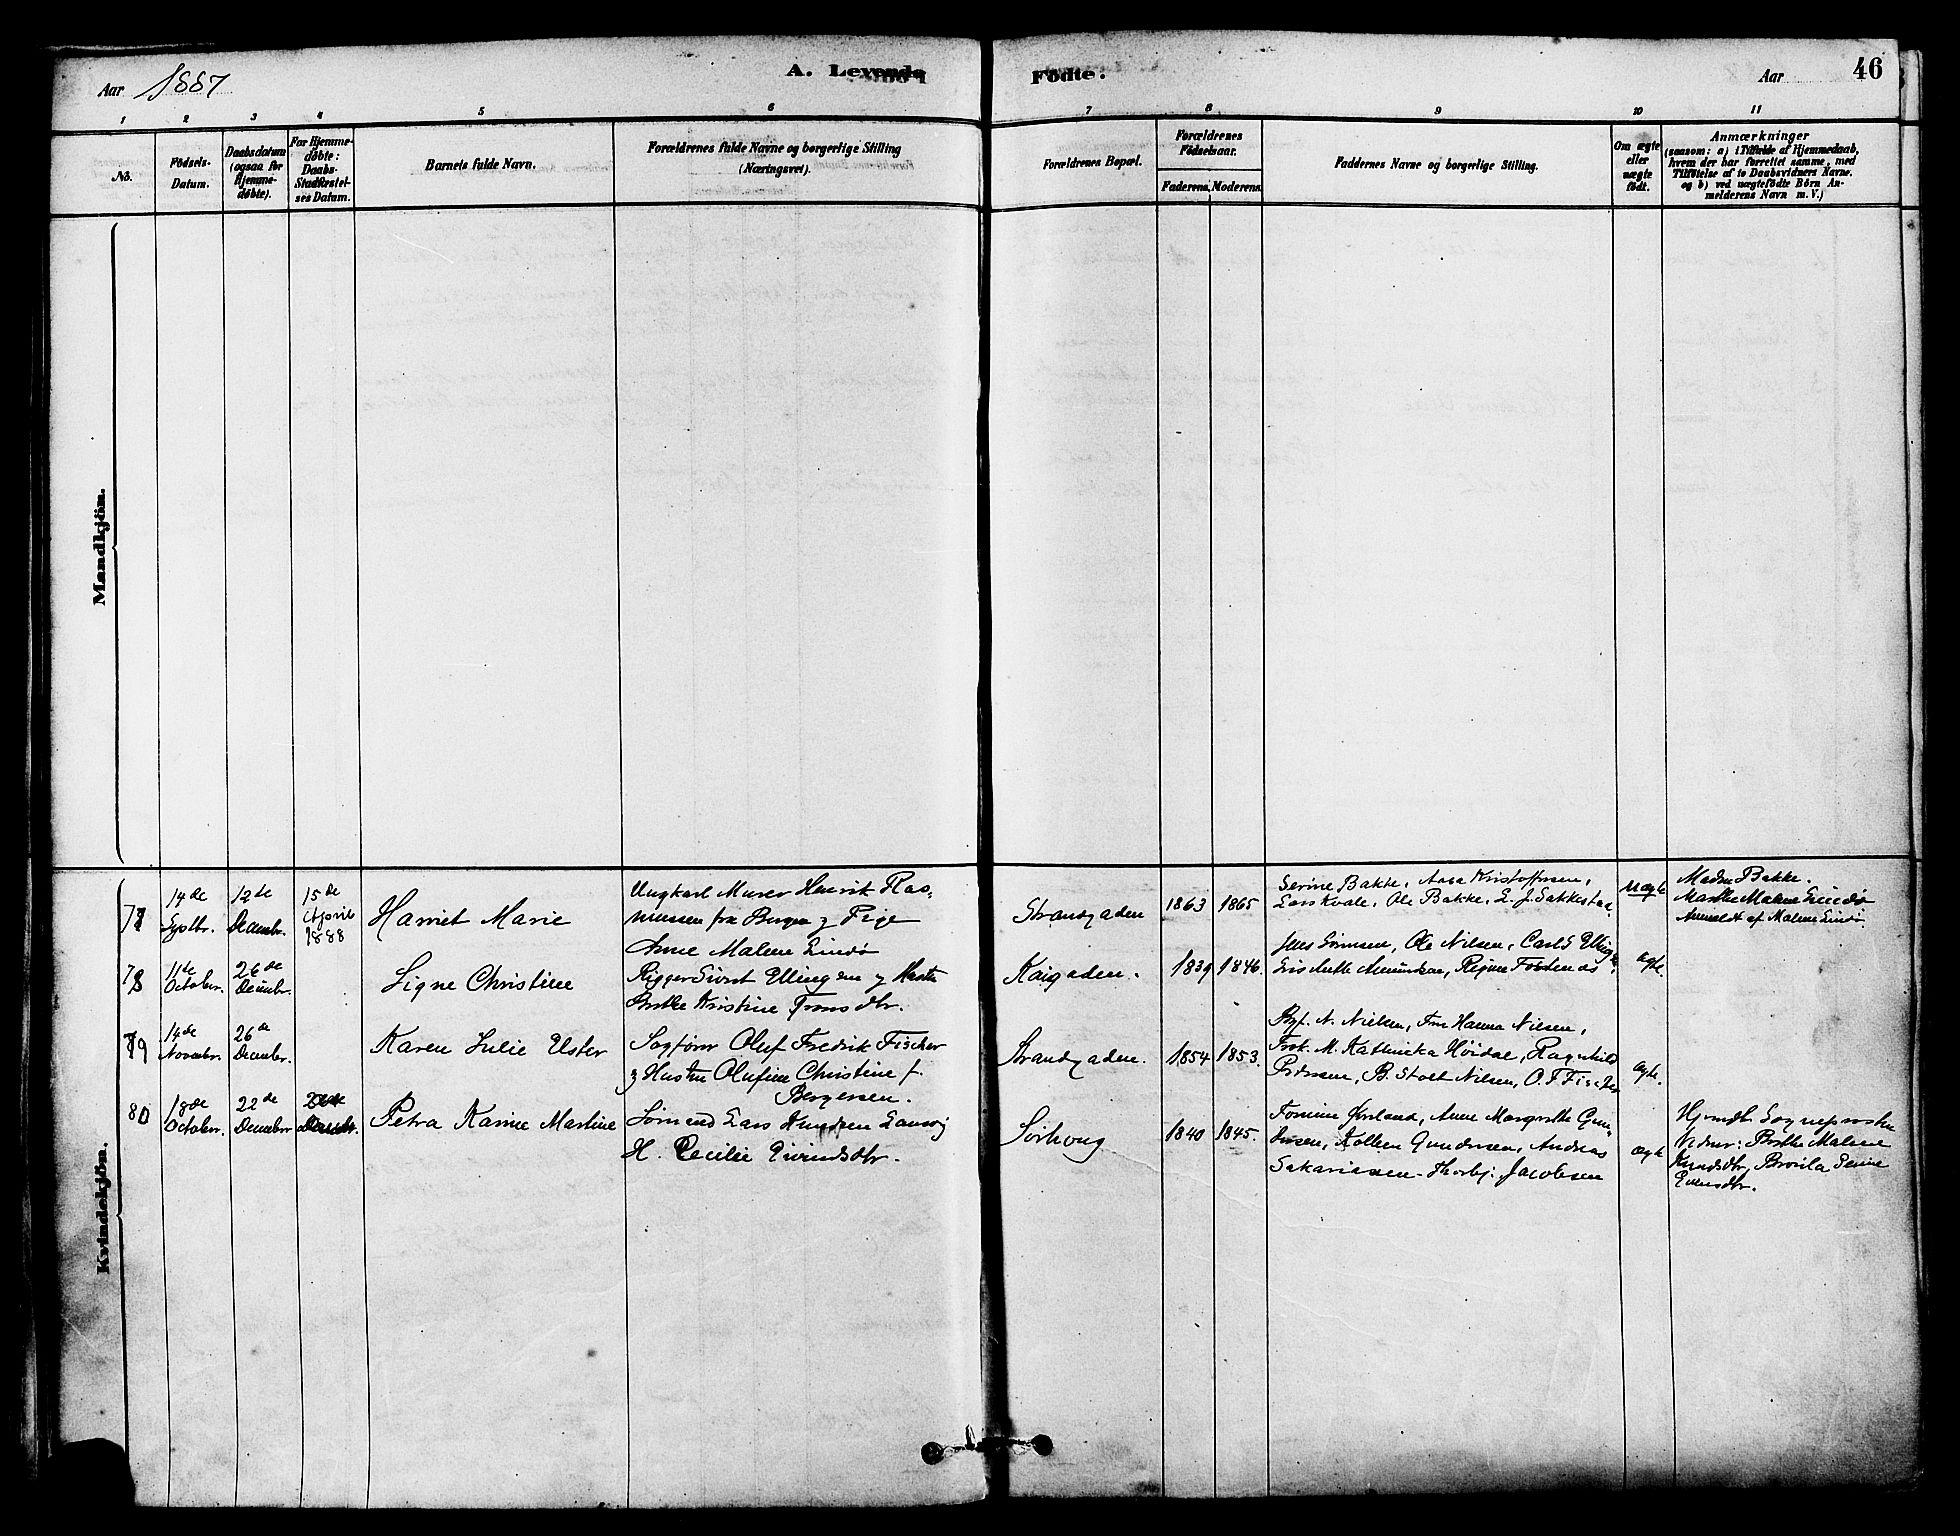 Aar 1887
A. Levende Födte.
Aar
46
1
2
3
4
5
6
7
8
9
10
11
No.
Födsels-
Datum.
Daabsdatum
(ogsaa for
Hjemme-
döbte).
For Hjemme-
döbte:
Daabs-
Stadfæstel-
ses Datum.
Barnets fulde Navn.
Forældrenes fulde Navne og borgerlige Stilling
(Næringsvei).
Forældrenes Bopæl.
Forældrenes
Födselsaar.
Faderens.
Moderens.
Faddernes Navne og borgerlige Stilling.
Om ægte
eller
uægte
födt.
Anmærkninger
(saasom: a) i Tilfælde af Hjemmedaab,
hvem der har forrettet samme, med
Tilföielse af to Daabsvidners Navne,
og b) ved uægtefödte Börn An-
melderens Navn m. V.)
Mandkjön.
Kvindekjön.
77
14de
Septbr.
12te
Decembr.
15de
April
1888
Harriet Marie
Ungkarl Murer Henrik Ras-
mussen fra Bergen og Pige
Anne Malene Lindø
Strandgaden
1863
1865
Serine Bakke, Aasa Kristoffersen,
Lars Kvale, Ole Bakke, L. J. Sakkestad
uægte
Madse Bakke.
Marthe Malene Lindø
Anmeldt af Malene Lindø.
78
11te
Octobr.
26de
Decembr.
Signe Christine
Rigger Sivert Ellingsen og Hustru
Berthe Kristine Tronsdtr.
Kaigaden.
1839
1846.
Jens Sørensen, Ole Nilsen, Carl S Ellings
Amundsen, Regine
ægte.
79
14de
Novembr.
26de
Decembr.
Karen Julie Ester
Sagfører Oluf Fredrik Fischer
og Hustru Olufine Christine f.
Bergersen.
Strandgaden.
1854
1853.
N. Nielsen, Fru Hanna Nielsen,
Frøk. M. Kathinka Høidal, Ragnhild
B. Stolt Nilsen, O. F. Fischer
ægte.
80
18de
Octobr.
22de
Decembr
26de
Decembr.
Petra Karine Martine
Sømand Lars Knudsen
H. Cecilie Eivindsdtr.
Sørhoug
1840
1845.
Tomine Ørland, Anne Margrethe Gun-
dersen, Gundersen, Andreas
Sakariassen - Thorbj: Jacobsen
ægte
Hjemdt. Sogneprosten
Vidner: Berthe Malene
Knudsdtr,